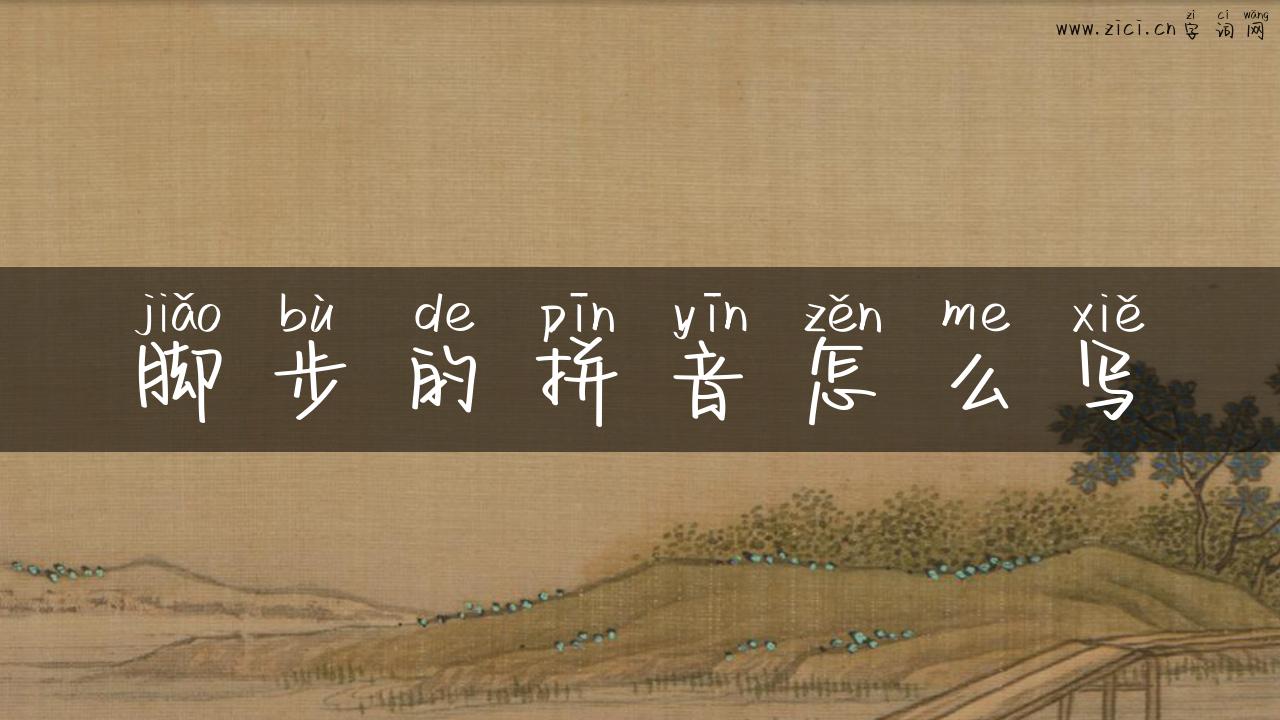 zì cí wǎng
www.zici.cn字词网
jiǎo bù de pīn yīn zěn me xiě
脚步的拼音怎么写